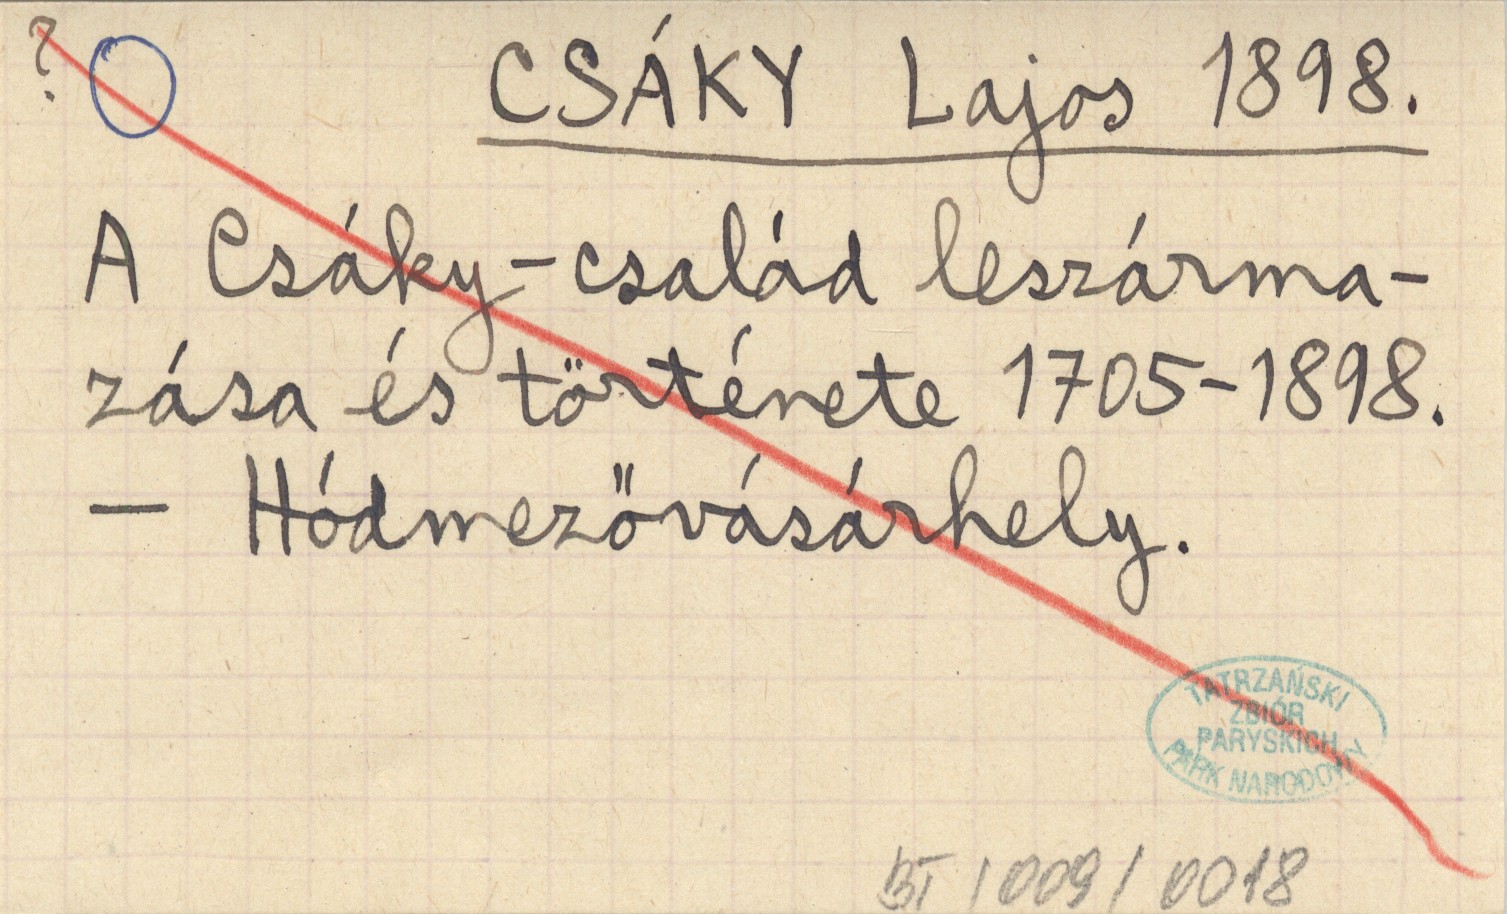 ?
CSÁKY Lajos 1898.
A Csáky-család leszárma-
zása és története 1705-1898.
— Hódmezővásárhely.
TATRZAŃSKI
ZBIÓR
PARYSKICH
PARK NARODOWY
BT / 009 / 0018